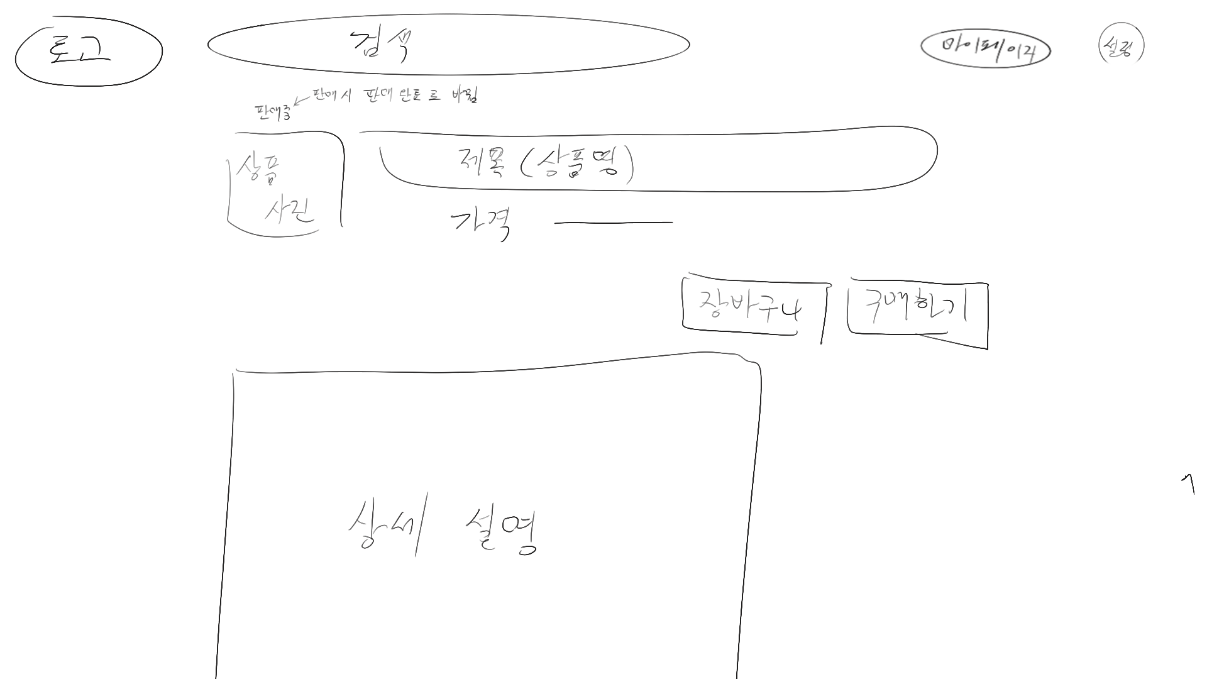 로고
검색
마이페이지
설정
판매중
판매시 판매 완료로 바뀜
상품
사진
제목 (상품명)
가격
장바구니
구매하기
상세 설명